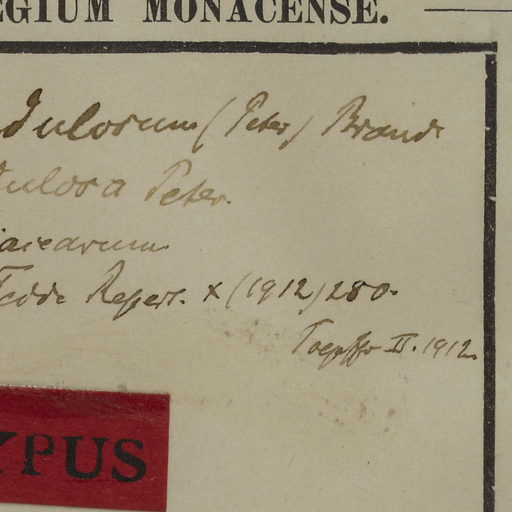 EGIUM MONACENSE.
dulosum (Peter) Brand
dulosa Peter.
iacearum
Fedde Repert. X (1912) 280.
Toepffer II. 1912.
YPUS